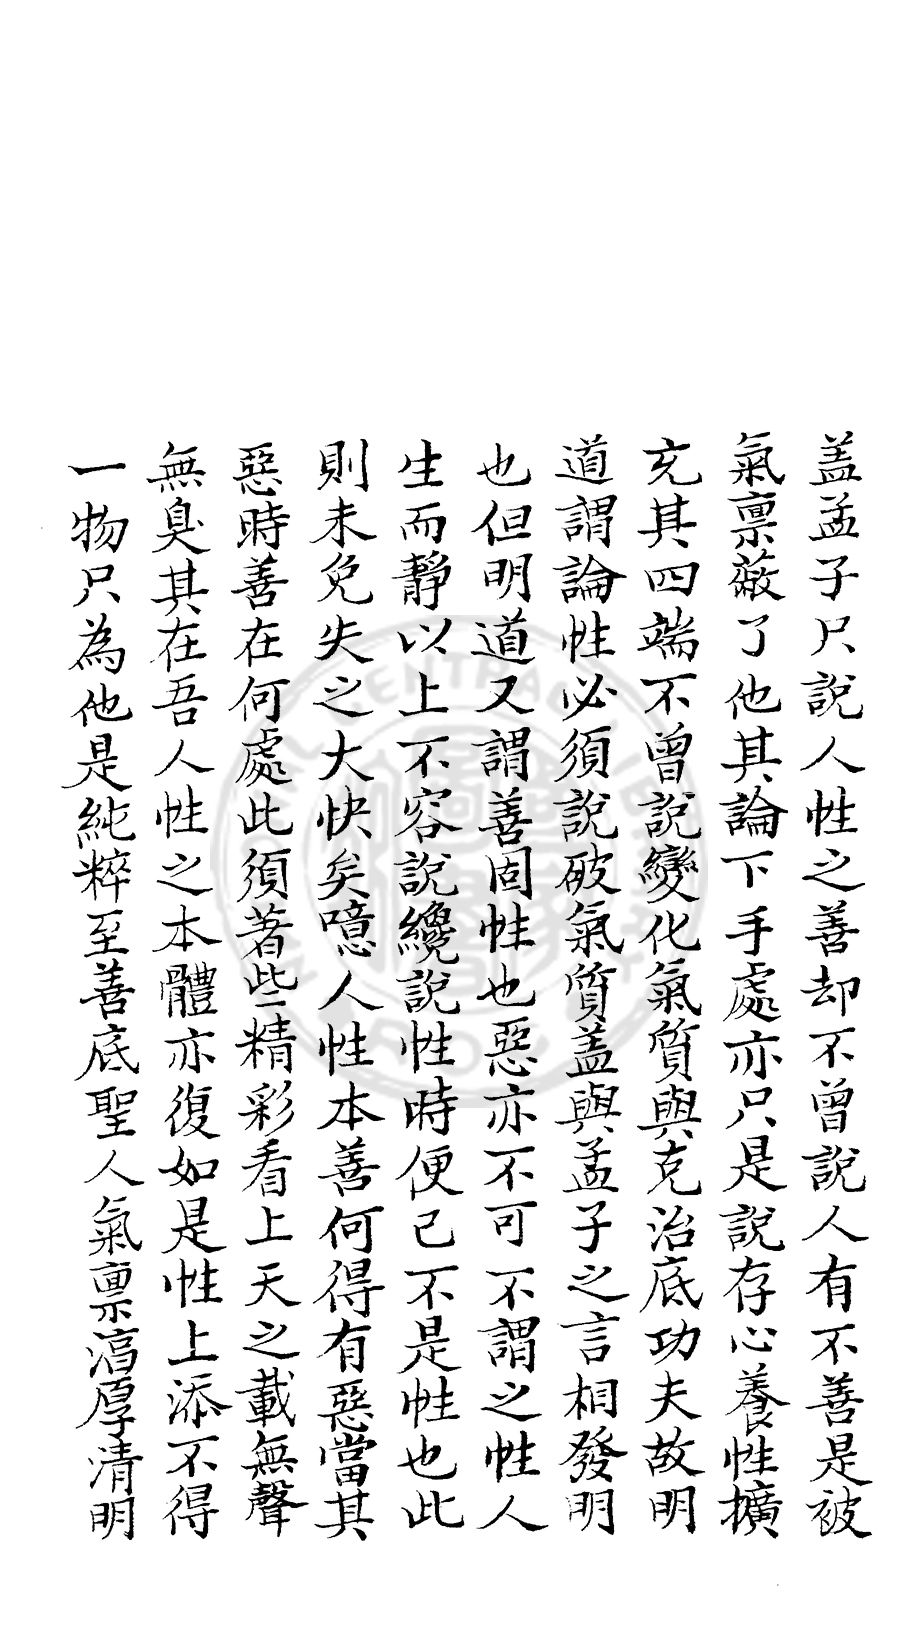 盖孟子只說人性之善却不曾說人有不善是被
氣禀蔽了他其論下手處亦只是說存心養性擴
充其四端不曾說變化氣質與克治底功夫故明
道謂論性必須說破氣質盖與孟子之言相發明
也但明道又謂善固性也惡亦不可不謂之性人
生而靜以上不容說纔說性時便已不是性也此
則未免失之大快矣噫人性本善何得有惡當其
惡時善在何處此須著些精彩看上天之載無聲
無臭其在吾人性之本體亦復如是性上添不得
一物只為他是純粹至善底聖人氣禀湻厚清明